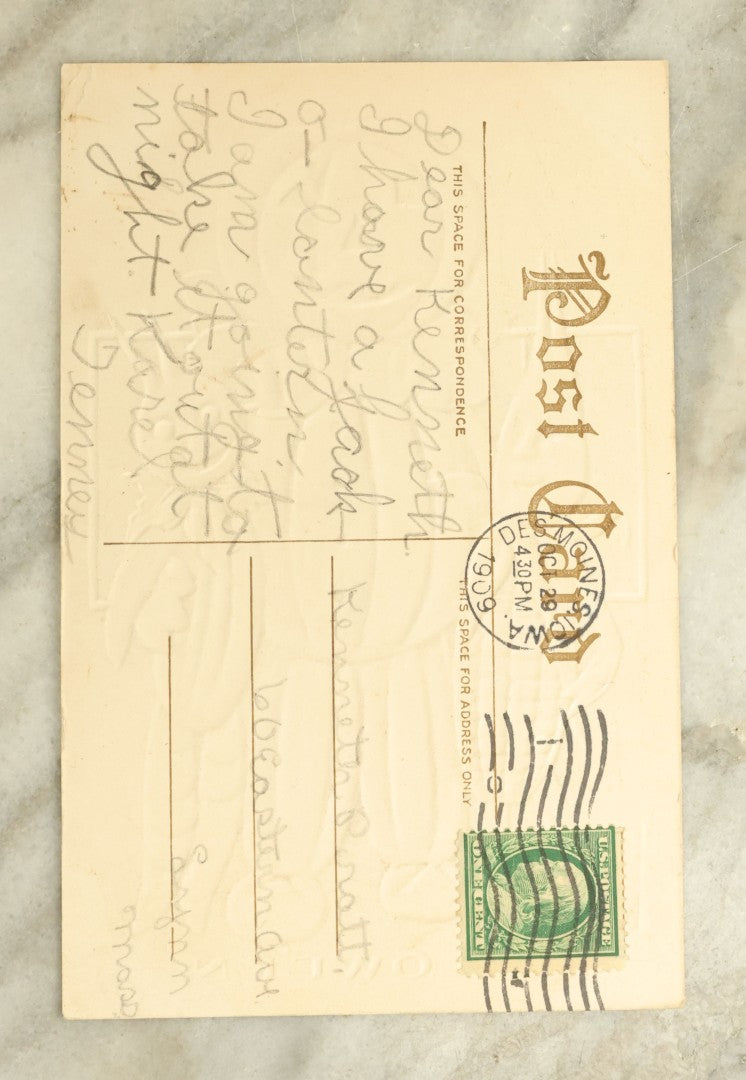 Post Card
THIS SPACE FOR CORRESPONDENCE
Dear Kenneth
I have a Jack
o-lantern
I am going to
take it out at
night. Karl
Tenney
DES MOINES, IOWA.
OCT 29
4 30 PM
1909
THIS SPACE FOR ADDRESS ONLY
Kenneth Pratt.
60 Eastern Ave
Lynn
Mass
U.S. POSTAGE
ONE CENT